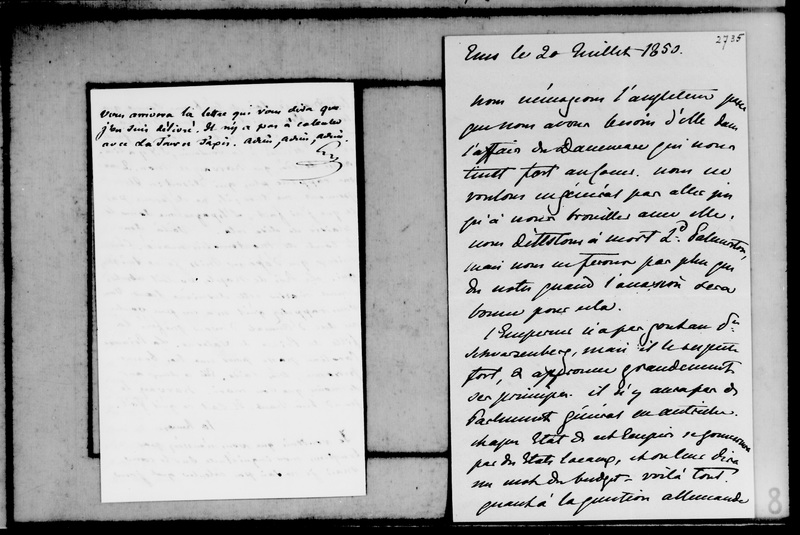 vous arrivera la lettre qui vous dira que
j'en suis délivré. Il n'y a pas à calculer
avec La Tour et Tapis. Adieu, Adieu, Adieu.
2735
Ems le 20 Juillet 1850.
nous ménageons l'angleterre parce
que nous avons besoin d'elle dans
l'affaire du Danemarc qui nous
tient fort au coeur. nous ne
voulons en général pas aller jus
qu'à nous brouiller avec elle.
nous détestons à mort Ld Palmerston,
mais nous ne ferons pas plus que
des notes quand l'occasion sera
bonne pour cela.
l'Empereur n'a pas goûté au Pce
Schwarzenberg, mais il le respecte
fort, & approuve grandement
ses principes. il n'y aura pas de
Parlement général en autriche.
chaque Etat de cet Empire se gouvernera
par des Etats locaux, et on leur dira
un mot du budget - voilà tout.
quant à la question allemande
8